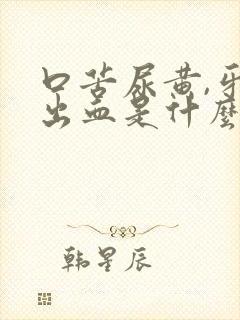 口苦尿黄,牙
出血是什麼
韩星辰